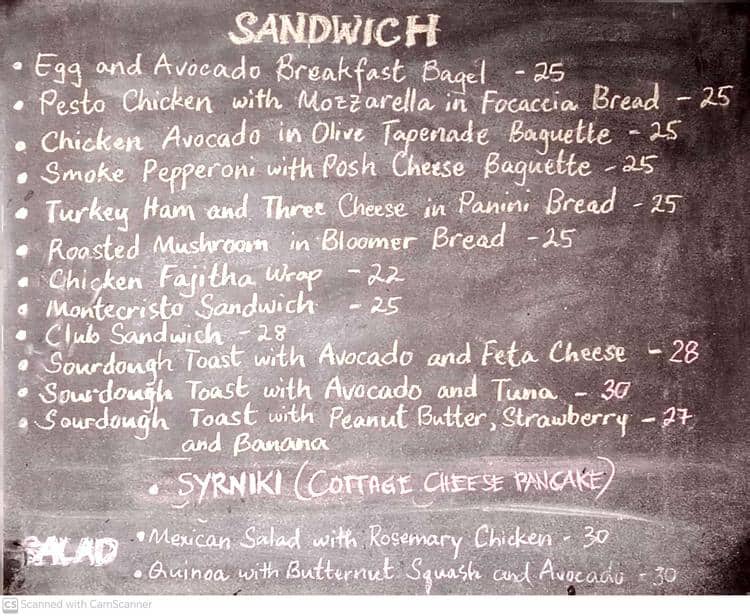 SANDWICH
• Egg and Avocado Breakfast Bagel - 25
• Pesto Chicken with Mozzarella in Focaccia Bread - 25
• Chicken Avocado in Olive Tapenade Baguette - 25
• Smoke Pepperoni with Posh Cheese Baguette - 25
• Turkey Ham and Three Cheese in Panini Bread - 25
• Roasted Mushroom in Bloomer Bread - 25
• Chicken Fajitha Wrap - 22
• Montecristo Sandwich - 25
• Club Sandwich - 28
• Sourdough Toast with Avocado and Feta Cheese - 28
• Sourdough Toast with Avocado and Tuna - 30
• Sourdough Toast with Peanut Butter, Strawberry - 27
and Banana
• SYRNIKI (COTTAGE CHEESE PANCAKE)
SALAD • Mexican Salad with Rosemary Chicken - 30
• Quinoa with Butternut Squash and Avocado - 30
CS Scanned with CamScanner